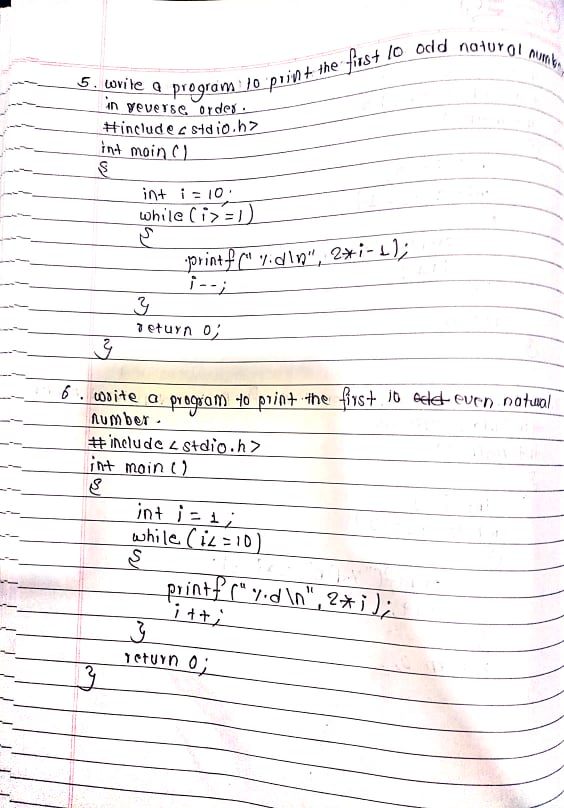 5. write a program to print the first 10 odd natural number
in reverse order.
#include<stdio.h>
int main()
{
int i = 10;
while(i>=1)
{
printf("%d\n", 2*i-1);
i--;
}
return 0;
}
6. write a program to print the first 10 odd even natural
number.
#include<stdio.h>
int main()
{
int i = 1;
while(i<=10)
{
printf("%d\n", 2*i);
i++;
}
return 0;
}